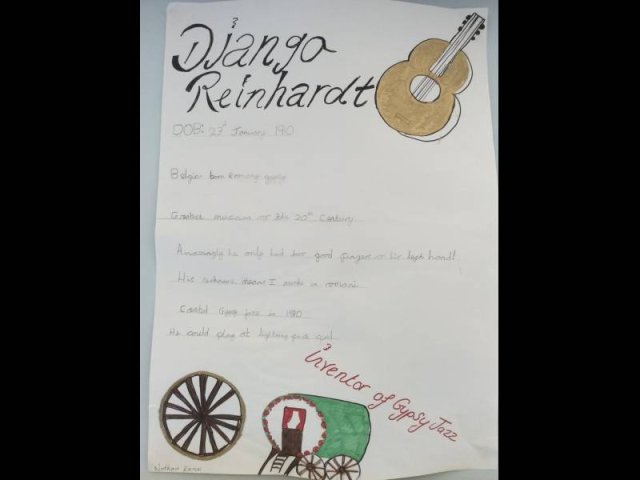 Django
Reinhardt
DOB: 23rd January 1910
Belgian born Romany gypsy
Greatest musician of the 20th Century
Amazingly he only had two good fingers on his left hand!
His nickname means I awake in romani
Created Gypsy jazz in 1930
He could play at lightning quick speed
inventor of Gypsy Jazz
Nathan